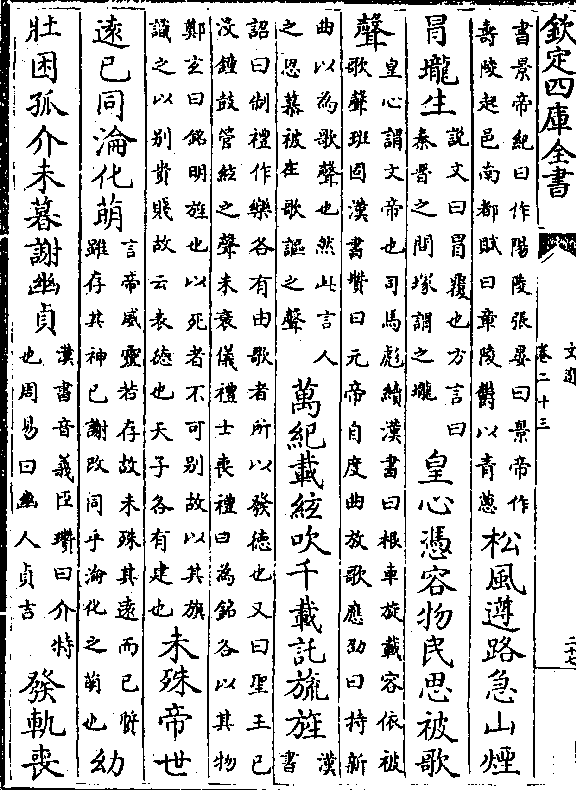 欽定四庫全書
文選
卷二十三
二十七
書景帝紀曰作陽陵張晏曰景帝作
壽陵起邑南都賦曰章陵鬱以青蔥
松風遵路急山煙
冐壠生
說文曰冐覆也方言曰
秦晉之間塚謂之壠
皇心憑容物民思被歌
聲
皇心謂文帝也司馬彪續漢書曰根車旋載容依被
歌聲班固漢書贊曰元帝自度曲放歌應劭曰持新
曲以為歌聲也然此言人
之恩慕被在歌謳之聲
萬紀載絃吹千載託旒旌
漢
書
詔曰制禮作樂各有由歌者所以發徳也又曰聖王已
沒鐘鼓管絃之聲未衰儀禮士喪禮曰為銘各以其物
鄭玄曰銘明旌也以死者不可别故以其旗
識之以别貴賤故云表徳也天子各有建也
未殊帝世
遠已同淪化萌
言帝威靈若存故未殊其遠而已賢
雖存其神已謝改同乎淪化之萌也
幼
壯困孤介末暮謝幽貞
漢書音義臣瓚曰介特
也周易曰幽人貞吉
發軌喪